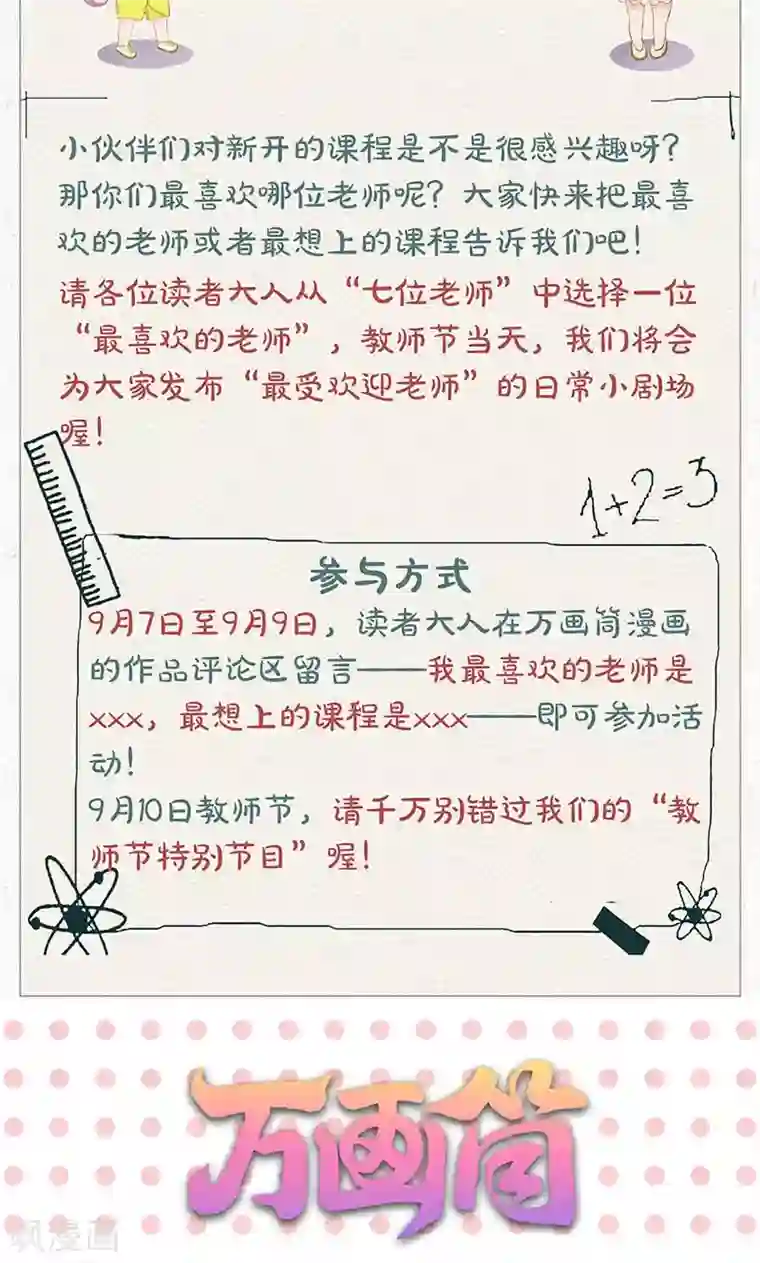 小伙伴们对新开的课程是不是很感兴趣呀？
那你们最喜欢哪位老师呢？大家快来把最喜
欢的老师或者最想上的课程告诉我们吧！
请各位读者大人从“七位老师”中选择一位
“最喜欢的老师”，教师节当天，我们将会
为大家发布“最受欢迎老师”的日常小剧场
喔！
1+2=3
参与方式
9月7日至9月9日，读者大人在万画筒漫画
的作品评论区留言——我最喜欢的老师是
xxx，最想上的课程是xxx——即可参加活
动！
9月10日教师节，请千万别错过我们的“教
师节特别节目”喔！
万画筒
飒漫画